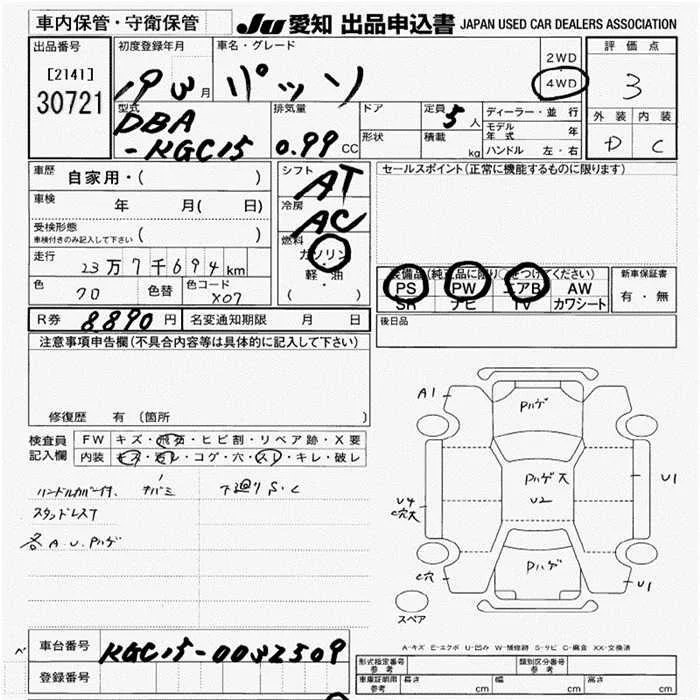 車内保管・守衛保管
JU 愛知 出品申込書 JAPAN USED CAR DEALERS ASSOCIATION
出品番号
[2141]
30721
初度登録年月
19 3 月
車名・グレード
パッソ
2WD
4WD
評価点
3
外装 内装
D C
型式
DBA
-KGC15
排気量
0.99 CC
ドア
形状
定員
5 人
積載
kg
ディーラー・並行
モデル年式 年
ハンドル 左・右
車歴 自家用・( )
車検 年 月( 日)
受検形態
車検付きのみ記入して下さい ( )
走行 23万7千694km
色 クロ 色替 色コード X07
シフト AT
冷房 AC
燃料
ガソリン
軽・油
( )
セールスポイント(正常に機能するものに限ります)
装備品(純正品に限り○をつけてください)
PS PW エアB AW
SR ナビ TV カワシート
新車保証書
有・無
R券 8,890 円 名変通知期限 月 日
後日品
注意事項申告欄(不具合内容等は具体的に記入して下さい)
修復歴 有 (箇所 )
検査員記入欄
FW キズ・飛石・ヒビ割・リペア跡・X要
内装 キズ・汚レ・コゲ・穴・スレ・キレ・破レ
ハンドルカバー付、 下廻りS・C
スタッドレスT
各A.U.Pハゲ
A1
Pハゲ
Pハゲ大
U2
U1
U4
C穴大
Pハゲ
C穴
U1
スペア
A-キズ E-エクボ U-凹み W-補修跡 S-サビ C-腐食 XX-交換済
車台番号 KGC15-0032509
登録番号
形式指定番号
参考
類別区分番号
参考
車庫証明用
参考
長さ cm 幅 cm 高さ cm